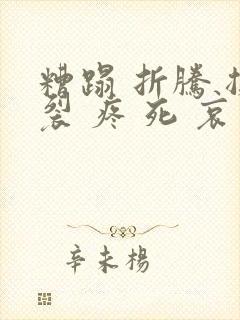 糟蹋 折騰
裂 疼 死 哀
辛未楊